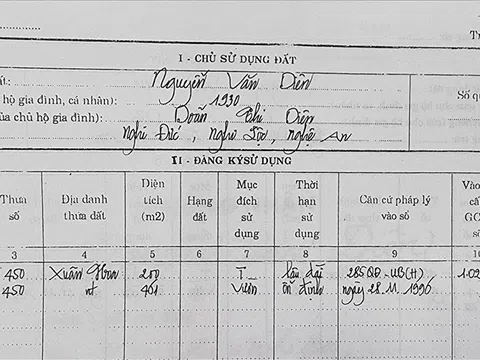 Tr
I - CHỦ SỬ DỤNG ĐẤT
ất: Nguyễn Văn Diên
hộ gia đình, cá nhân): 1930
Số qu
ủa chủ hộ gia đình): Doãn Thị Diện
Nghi Đức, Nghi Lộc, Nghệ An
II - ĐĂNG KÝ SỬ DỤNG
Thửa số
Địa danh thửa đất
Diện tích (m2)
Hạng đất
Mục đích sử dụng
Thời hạn sử dụng
Căn cứ pháp lý vào sổ
Vào cấ GC số
3 4 5 6 7 8 9 10
450 Xuân 200 T lâu dài 285QĐ-UB(H) 1.02
450 nt 401 Vườn ổn định ngày 28.11.1996